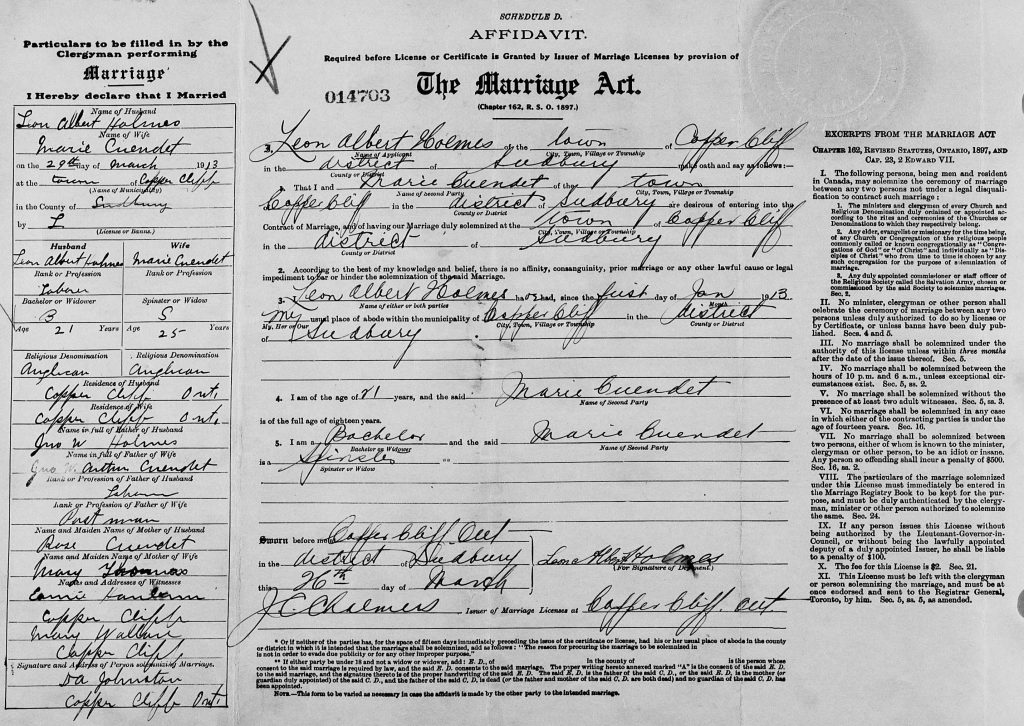 Particulars to be filled in by the
Clergyman performing
Marriage
I Hereby declare that I Married
Name of Husband
Leon Albert Holmes
Name of Wife
Marie Cuendet
on the 29th day of March 1913
at the town of Copper Cliff
(Name of Municipality)
in the County of Sudbury
by L
(License or Banns.)
Husband Wife
Leon Albert Holmes Marie Cuendet
Rank or Profession Rank or Profession
Laborer
Bachelor or Widower Spinster or Widow
B S
Age 21 Years Age 25 Years
Religious Denomination Religious Denomination
Anglican Anglican
Residence of Husband
Copper Cliff Ont.
Residence of Wife
Copper Cliff Ont.
Name in full of Father of Husband
Jno W Holmes
Name in full of Father of Wife
Arthur Cuendet
Rank or Profession of Father of Husband
Rank or Profession of Father of Wife
Postman
Name and Maiden Name of Mother of Husband
Rose Cuendet
Name and Maiden Name of Mother of Wife
Mary Thomas
Names and Addresses of Witnesses
Copper Cliff
Mary Wallace
Copper Cliff
Signature and Address of Person solemnizing Marriage.
Johnston
Copper Cliff Ont.
SCHEDULE D.
AFFIDAVIT.
Required before License or Certificate is Granted by Issuer of Marriage Licenses by provision of
014703 The Marriage Act.
(Chapter 162, R. S. O. 1897.)
I, Leon Albert Holmes of the town of Copper Cliff
Name of Applicant City, Town, Village or Township
in the district of Sudbury make oath and say as follows:—
County or District
1. That I and Marie Cuendet of the town
Name of Second Party City, Town, Village or Township
Copper Cliff in the district of Sudbury are desirous of entering into the
County or District
Contract of Marriage, and of having our Marriage duly solemnized at the town of Copper Cliff
City, Town, Village or Township
in the district of Sudbury
County or District
2. According to the best of my knowledge and belief, there is no affinity, consanguinity, prior marriage or any other lawful cause or legal
impediment to bar or hinder the solemnization of the said Marriage.
3. Leon Albert Holmes had, since the first day of Jan 1913
Name of either or both parties Month
My usual place of abode within the municipality of Copper Cliff in the district
My, Her or Our City, Town, Village or Township County or District
of Sudbury.
4. I am of the age of 21 years, and the said Marie Cuendet
Name of Second Party
is of the full age of eighteen years.
5. I am a Bachelor and the said Marie Cuendet
Bachelor or Widower Name of Second Party
is a Spinster **
Spinster or Widow
Sworn before me Copper Cliff Ont
in the district of Sudbury Leon Albert Holmes
(For Signature of Deponent.)
this 26th day of March
J C Chalmers Issuer of Marriage Licenses at Copper Cliff. Ont.
* Or if neither of the parties has, for the space of fifteen days immediately preceding the issue of the certificate or license, had his or her usual place of abode in the county
or district in which it is intended that the marriage shall be solemnized, add as follows: "The reason for procuring the marriage to be solemnized in
is not in order to evade due publicity or for any other improper purpose."
** If either party be under 18 and not a widow or widower, add: E. D., of in the county of is the person whose
consent to the said marriage is required by law, and the said E. D. consents to the said marriage. The paper writing hereto annexed marked "A" is the consent of the said E. D.
to the said marriage, and the signature thereto is of the proper handwriting of the said E. D. The said E. D. is the father of the said C. D., or the said E. D. is the mother (or
guardian duly appointed) of the said C. D., and the father of the said C. D. is dead (or the father and mother of the said C. D. are both dead) and no guardian of the said C. D. has
been appointed.
NOTE.—This form to be varied as necessary in case the affidavit is made by the other party to the intended marriage.
EXCERPTS FROM THE MARRIAGE ACT
CHAPTER 162, REVISED STATUTES, ONTARIO, 1897, AND
CAP. 23, 2 EDWARD VII.
I. The following persons, being men and resident
in Canada, may solemnize the ceremony of marriage
between any two persons not under a legal disquali-
fication to contract such marriage:
1. The ministers and clergymen of every Church and
Religious Denomination duly ordained or appointed ac-
cording to the rites and ceremonies of the Churches or
Denominations to which they respectively belong.
2. Any elder, evangelist or missionary for the time being,
of any Church or Congregation of the religious people
commonly called or known congregationally as "Congre-
gations of God" or "of Christ" and individually as "Dis-
ciples of Christ" who from time to time is chosen by any
such congregation for the purpose of solemnization of
marriage.
3. Any duly appointed commissioner or staff officer of
the Religious Society called the Salvation Army, chosen or
commissioned by the said Society to solemnize marriages.
Sec. 2.
II. No minister, clergyman or other person shall
celebrate the ceremony of marriage between any two
persons unless duly authorized to do so by license or
by Certificate, or unless banns have been duly pub-
lished. Secs. 4 and 5.
III. No marriage shall be solemnized under the
authority of this license unless within three months
after the date of the issue thereof. Sec. 5.
IV. No marriage shall be solemnized between the
hours of 10 p.m. and 6 a.m., unless exceptional cir-
cumstances exist. Sec. 5, ss. 2.
V. No marriage shall be solemnized without the
presence of at least two adult witnesses. Sec. 5, ss. 3.
VI. No marriage shall be solemnized in any case
in which either of the contracting parties is under the
age of fourteen years. Sec. 16.
VII. No marriage shall be solemnized between two
persons, either of whom is known to the minister,
clergyman or other person, to be an idiot or insane.
Any person so offending shall incur a penalty of $500.
Sec. 16, ss. 2.
VIII. The particulars of the marriage solemnized
under this License must immediately be entered in
the Marriage Registry Book to be kept for the pur-
pose, and must be duly authenticated by the clergy-
man, minister or other person authorized to solemnize
the same. Sec. 24.
IX. If any person issues this License without
being authorized by the Lieutenant-Governor-in-
Council, or without being the lawfully appointed
deputy of a duly appointed Issuer, he shall be liable
to a penalty of $100.
X. The fee for this License is $2. Sec. 21.
XI. This License must be left with the clergyman
or person solemnizing the marriage, and must be at
once endorsed and sent to the Registrar General,
Toronto, by him. Sec. 5, ss. 5, as amended.